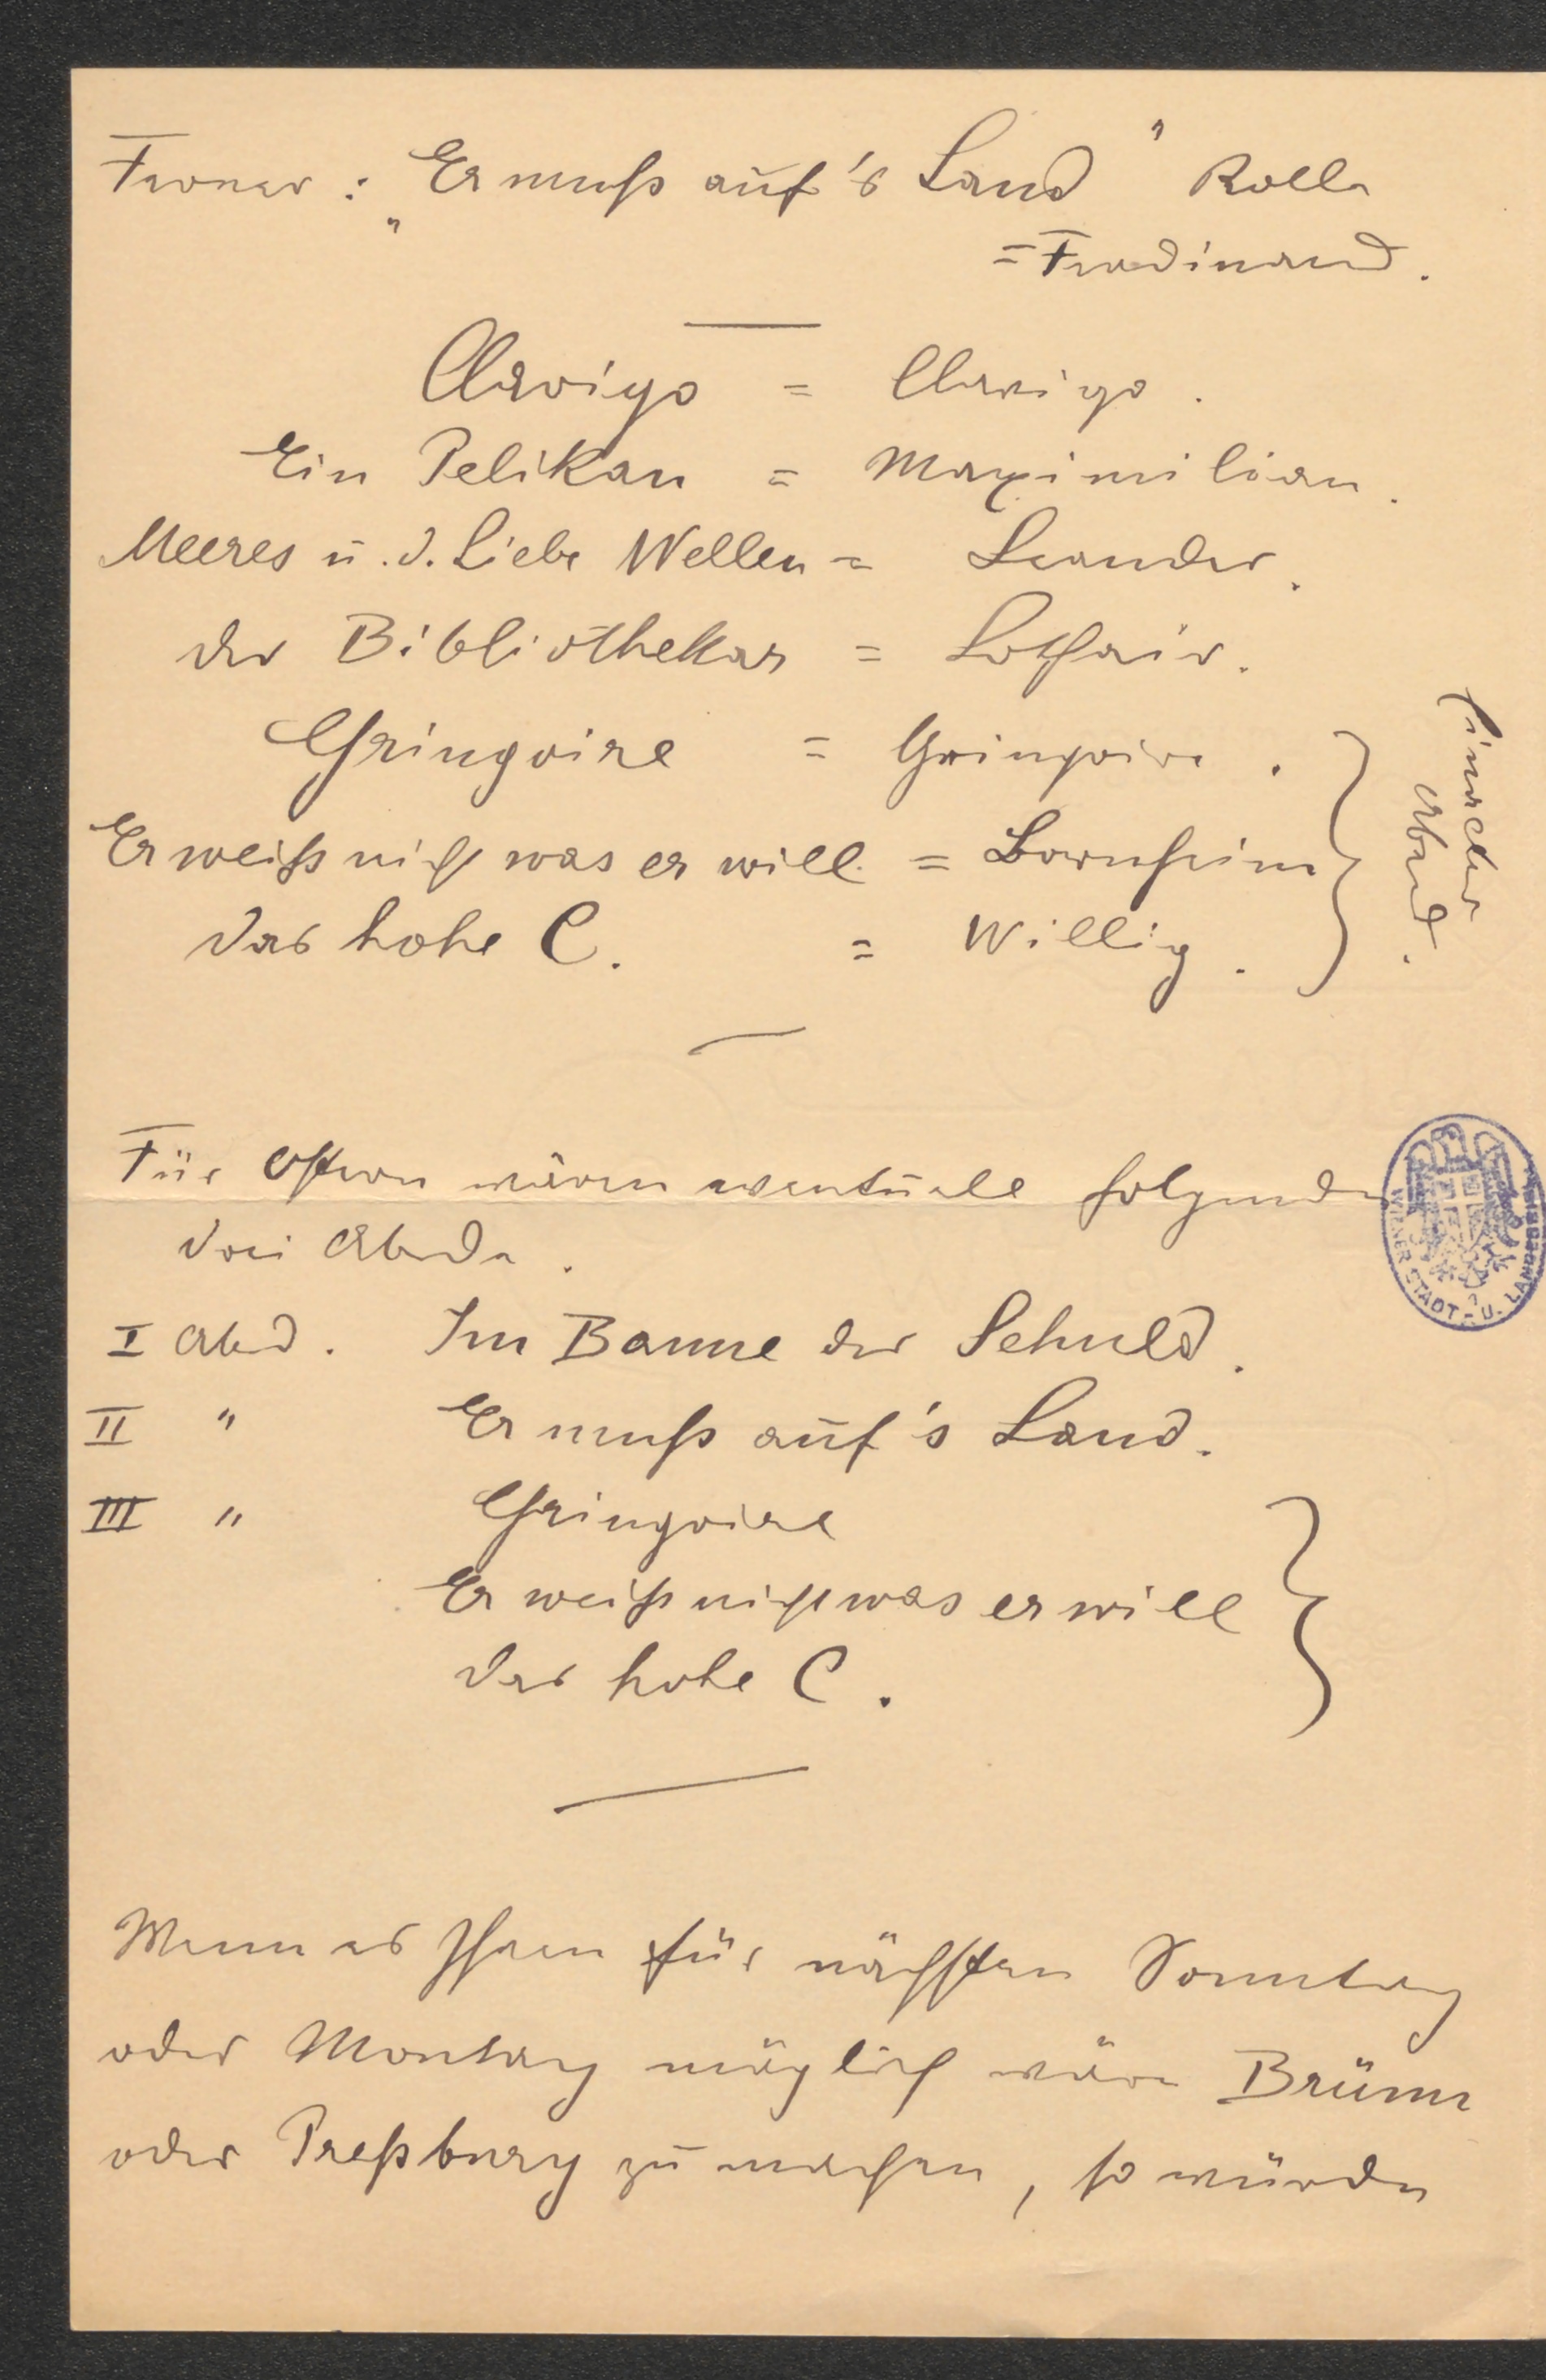 Ferner: „Er muß auf's Land" Rolle
= Ferdinand.
Clavigo = Clavigo.
Ein Pelikan = Maximilian.
Meeres u. d. Liebe Wellen = Leander.
der Bibliothekar = Lothair.
Gringoire = Gringoire.
Er weiß nicht was er will = Bornheim
das hohe C. = Willig.
Einacter
Abend.
Für Ostern wären eventuell folgende
drei Abende.
I Abend. Im Banne der Schuld.
II " Er muß auf's Land.
III " Gringoire
Er weiß nicht was er will
das hohe C.
WIENER STADT- U. LANDESBIBL
Wenn es Ihnen für nächsten Sonntag
oder Montag möglich wäre Brünn
oder Preßburg zu machen, so würde